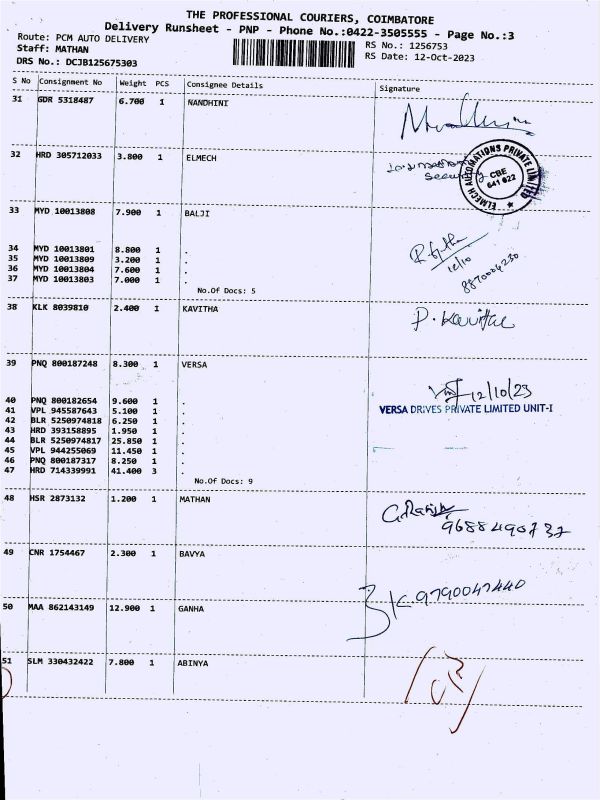 THE PROFESSIONAL COURIERS, COIMBATORE
Delivery Runsheet - PNP - Phone No.:0422-3505555 - Page No.:3
Route: PCM AUTO DELIVERY
RS No.: 1256753
Staff: MATHAN
RS Date: 12-Oct-2023
DRS No.: DCJB125675303
S No Consignment No Weight PCS Consignee Details Signature
31 GDR 5318487 6.700 1 NANDHINI
32 HRD 305712033 3.800 1 ELMECH
Security
ELMECH AUTOMATIONS PRIVATE LIMITED
CBE
641 022
33 MYD 10013808 7.900 1 BALJI
34 MYD 10013801 8.800 1 .
35 MYD 10013809 3.200 1 .
36 MYD 10013804 7.600 1 .
37 MYD 10013803 7.000 1 .
12/10
8870004230
No.Of Docs: 5
38 KLK 8039810 2.400 1 KAVITHA
P. Kavitha
39 PNQ 800187248 8.300 1 VERSA
12/10/23
VERSA DRIVES PRIVATE LIMITED UNIT-I
40 PNQ 800182654 9.600 1 .
41 VPL 945587643 5.100 1 .
42 BLR 5250974818 6.250 1 .
43 HRD 393158895 1.950 1 .
44 BLR 5250974817 25.850 1 .
45 VPL 944255069 11.450 1 .
46 PNQ 800187317 8.250 1 .
47 HRD 714339991 41.400 3 .
No.Of Docs: 9
48 HSR 2873132 1.200 1 MATHAN
9688490737
49 CNR 1754467 2.300 1 BAVYA
9790047440
50 MAA 862143149 12.900 1 GANHA
51 SLM 330432422 7.800 1 ABINYA